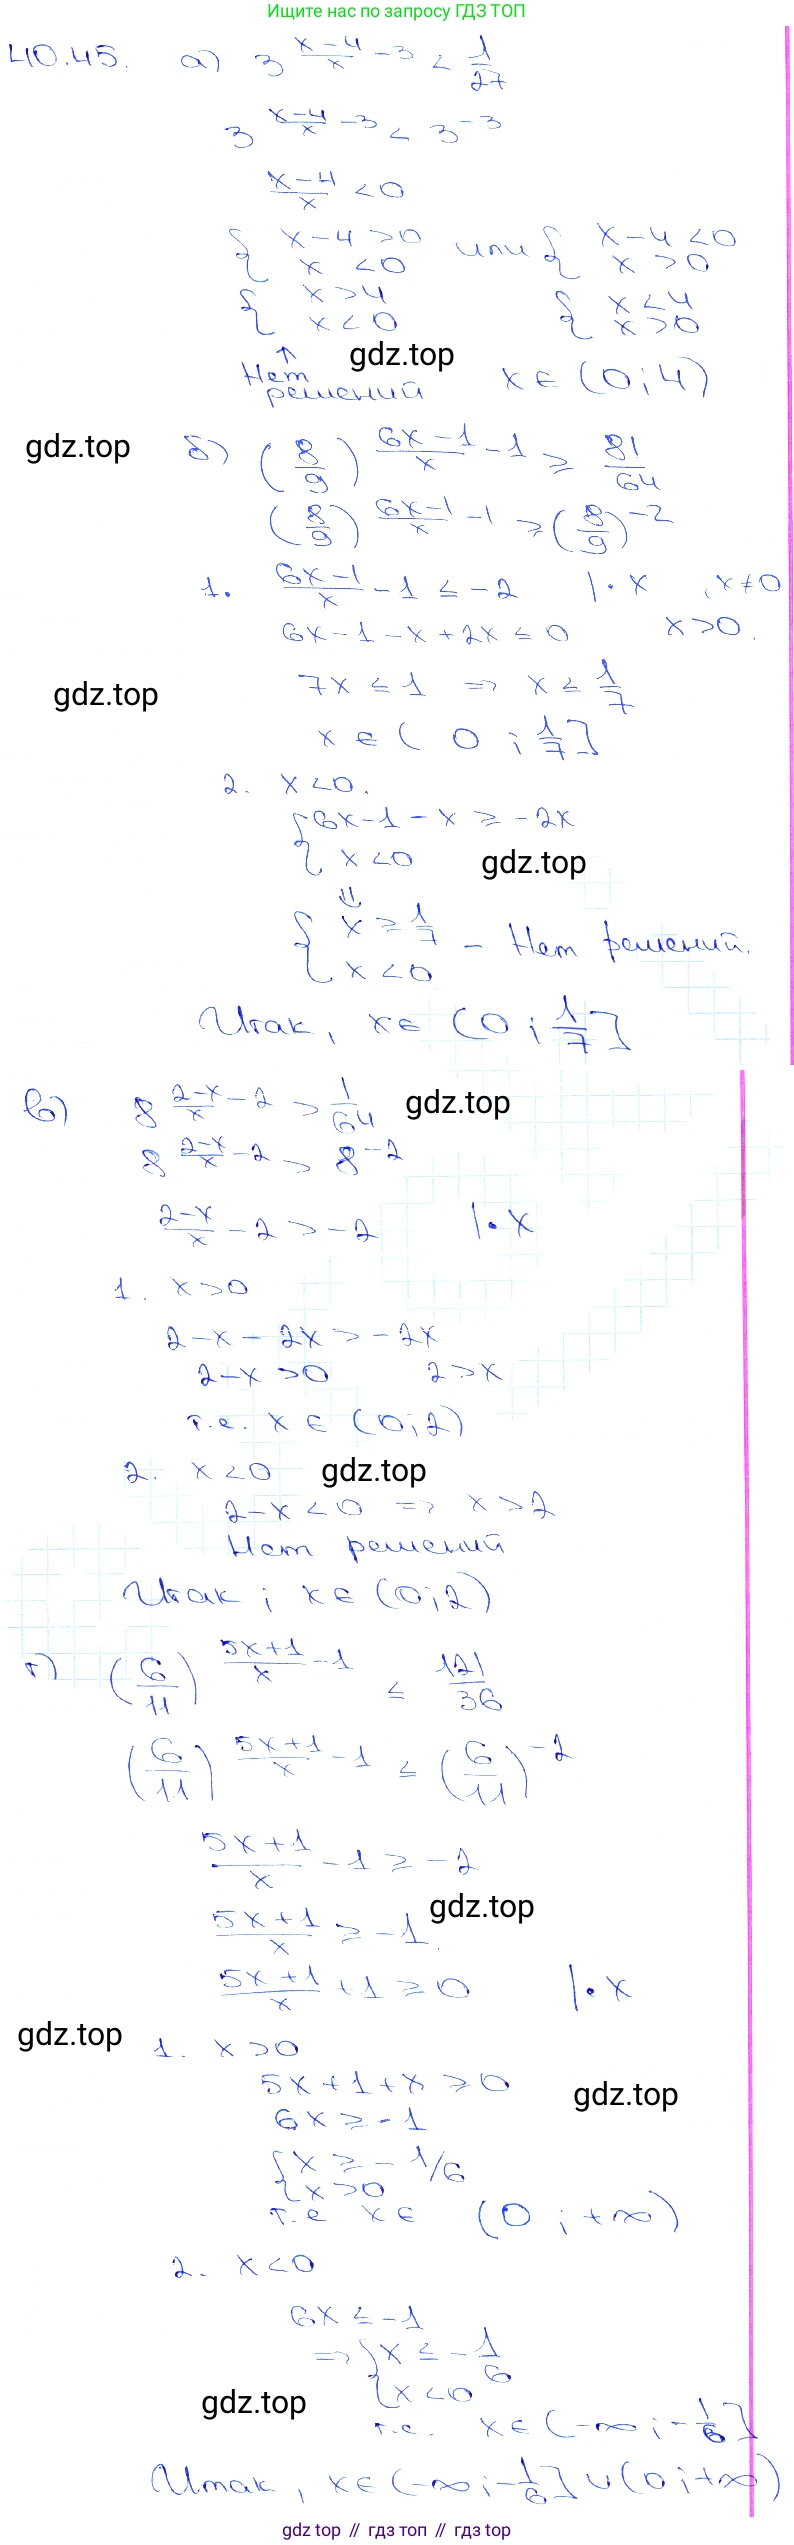 Ищите нас по запросу ГДЗ ТОП
40.45. а) 3^((x-4)/x - 3) < 1/27
3^((x-4)/x - 3) < 3^(-3)
(x-4)/x < 0
{ x-4 > 0 или { x-4 < 0
x < 0 x > 0
{ x > 4 { x < 4
x < 0 x > 0
↑ gdz.top
Нет x ∈ (0; 4)
решений
gdz.top б) (8/9)^((6x-1)/x - 1) ≥ 81/64
(8/9)^((6x-1)/x - 1) ≥ (8/9)^(-2)
1. (6x-1)/x - 1 ≤ -2 |·x , x≠0
6x-1-x+2x ≤ 0 x>0.
gdz.top 7x ≤ 1 => x ≤ 1/7
x ∈ (0; 1/7]
2. x<0.
{ 6x-1-x ≥ -2x
x<0 gdz.top
⇓
{ x ≥ 1/7 - Нет решений.
x<0
Итак, x∈ (0; 1/7]
в) 8^((2-x)/x - 2) > 1/64 gdz.top
8^((2-x)/x - 2) > 8^(-2)
(2-x)/x - 2 > -2 |·x
1. x>0
2-x-2x > -2x
2-x>0 2>x
т.е. x ∈ (0;2)
2. x<0 gdz.top
2-x<0 => x>2
Нет решений
Итак; x∈ (0;2)
г) (6/11)^((5x+1)/x - 1) ≤ 121/36
(6/11)^((5x+1)/x - 1) ≤ (6/11)^(-2)
(5x+1)/x - 1 ≥ -2
gdz.top
(5x+1)/x ≥ -1.
(5x+1)/x + 1 ≥ 0 |·x
gdz.top 1. x>0
5x+1+x ≥ 0 gdz.top
6x ≥ -1
{ x ≥ -1/6
x>0
т.е x∈ (0; +∞)
2. x<0
6x ≤ -1
=> { x ≤ -1/6
gdz.top x<0
т.е. x∈(-∞; -1/6]
Итак, x∈(-∞; -1/6] ∪ (0; +∞)
gdz top // гдз топ // gdz top